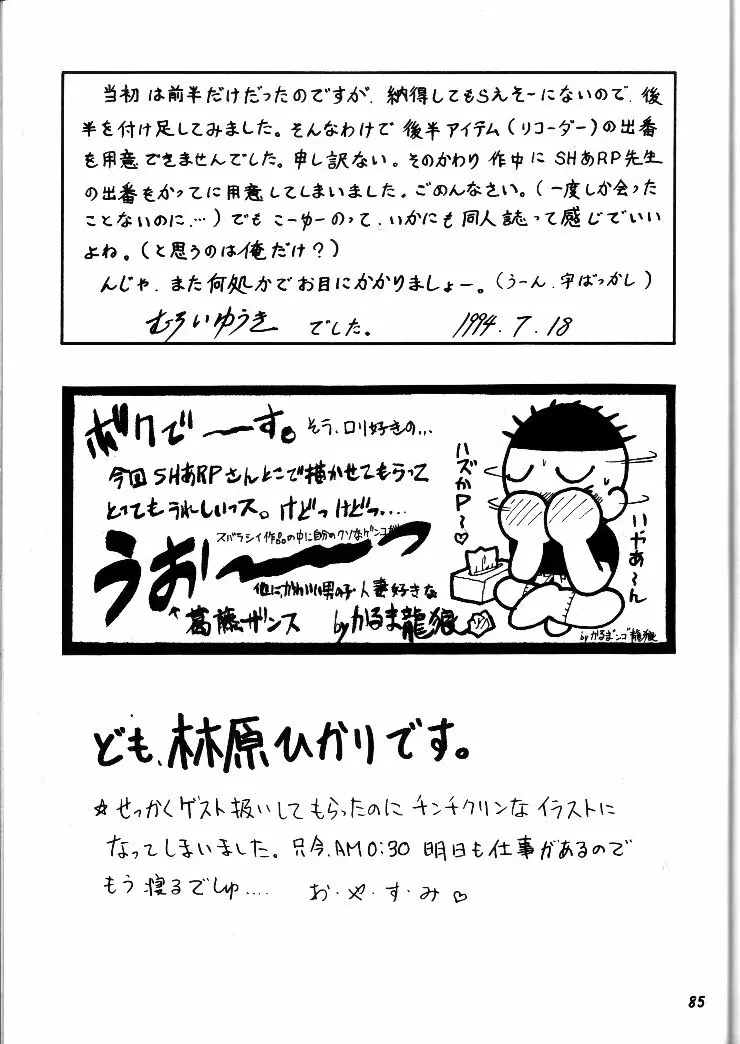 当初は前半だけだったのですが、納得してもらえそーにないので、後
半を付け足してみました。そんなわけで後半アイテム(リコーダー)の出番
を用意できませんでした。申し訳ない。そのかわり作中にSHあRP先生
の出番をかってに用意してしまいました。ごめんなさい。(一度しか会った
ことないのに…)でもこーゆーのって、いかにも同人誌って感じでいい
よね。(と思うのは俺だけ?)
んじゃ、また何処かでお目にかかりましょー。(うーん、字ばっかし)
むろいゆうき でした。 1994.7.18
ボクで〜〜す。そう、ロリ好きの…
今回SHあRPさんとこで描かせてもらって
とってもうれしいっス。けどっけどっ….
スバラシイ作品の中に自分のクソなゲンコ
うお〜〜〜っ
他に、かわいい男の子・人妻好きな
葛藤ザンス byかるま龍狼
ハズかP〜♡
いやあ〜ん
byかるまンゴ龍狼
ども、林原ひかりです。
☆せっかくゲスト扱いしてもらったのにチンチクリンなイラストに
なってしまいました。只今、AM0:30 明日も仕事があるので
もう寝るでしゅ…. お・や・す・み♡
85